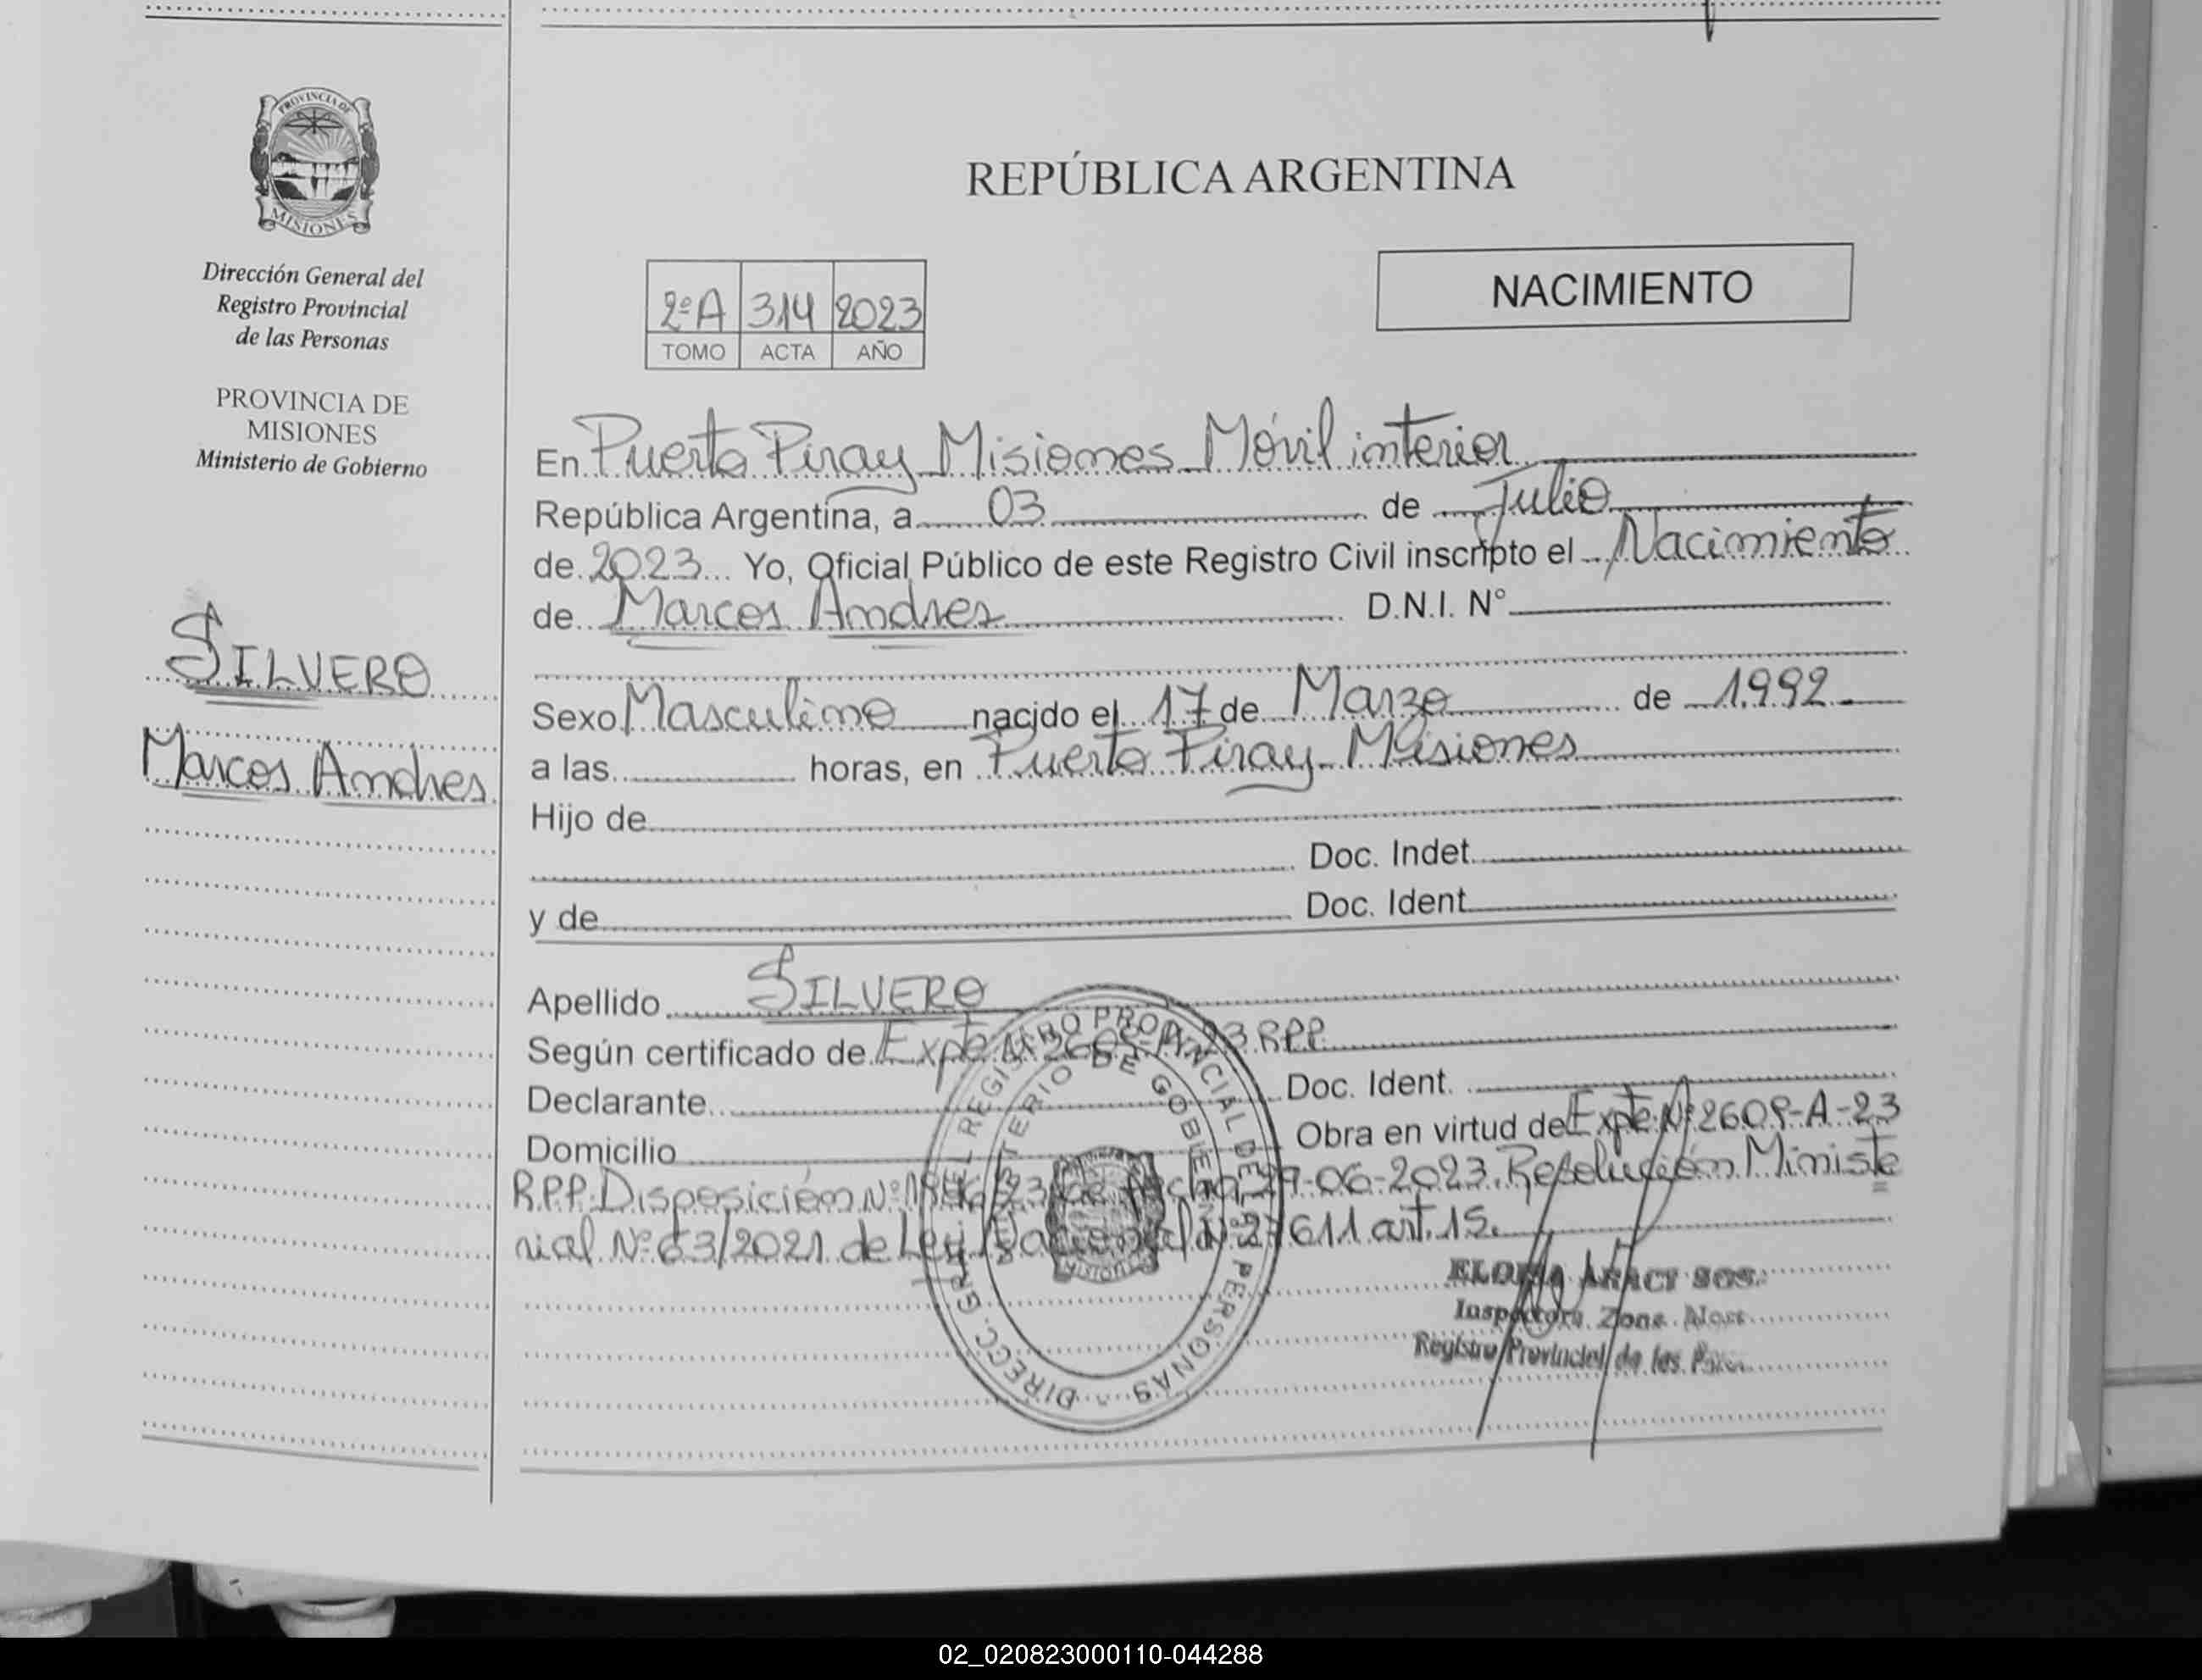 PROVINCIA DE
MISIONES
Dirección General del
Registro Provincial
de las Personas
PROVINCIA DE
MISIONES
Ministerio de Gobierno
SILVERO
Marcos Andres
REPÚBLICA ARGENTINA
NACIMIENTO
2ºA 314 2023
TOMO ACTA AÑO
En Puerto Piray Misiones Móvil interior
República Argentina, a 03 de Julio
de 2023 Yo, Oficial Público de este Registro Civil inscripto el Nacimiento
de Marcos Andres D.N.I. N°
Sexo Masculino nacido el 17 de Marzo de 1992
a las horas, en Puerto Piray Misiones
Hijo de
Doc. Indet.
y de Doc. Ident.
Apellido SILVERO
Según certificado de Expte RPP
Declarante Doc. Ident.
Domicilio Obra en virtud de Expte Nº 2609-A-23
R.P.P. Disposición Nº de fecha 29-06-2023. Resolución Ministe
rial Nº 63/2021 de Ley Nacional Nº 27611 art. 15.
DIRECC. GRAL. DEL REGISTRO PROVINCIAL DE LAS PERSONAS
MINISTERIO DE GOBIERNO
MISIONES
ARACI SOS
Inspectora Zona
Registro Provincial de las
02_020823000110-044288